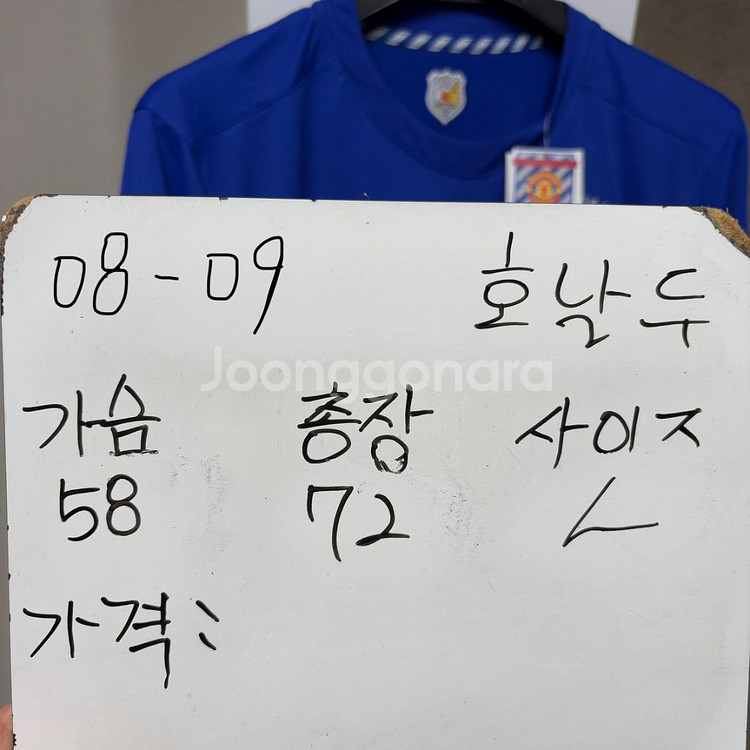 08-09 호날두
Joonggonara
가슴 총장 사이즈
58 72 L
가격: